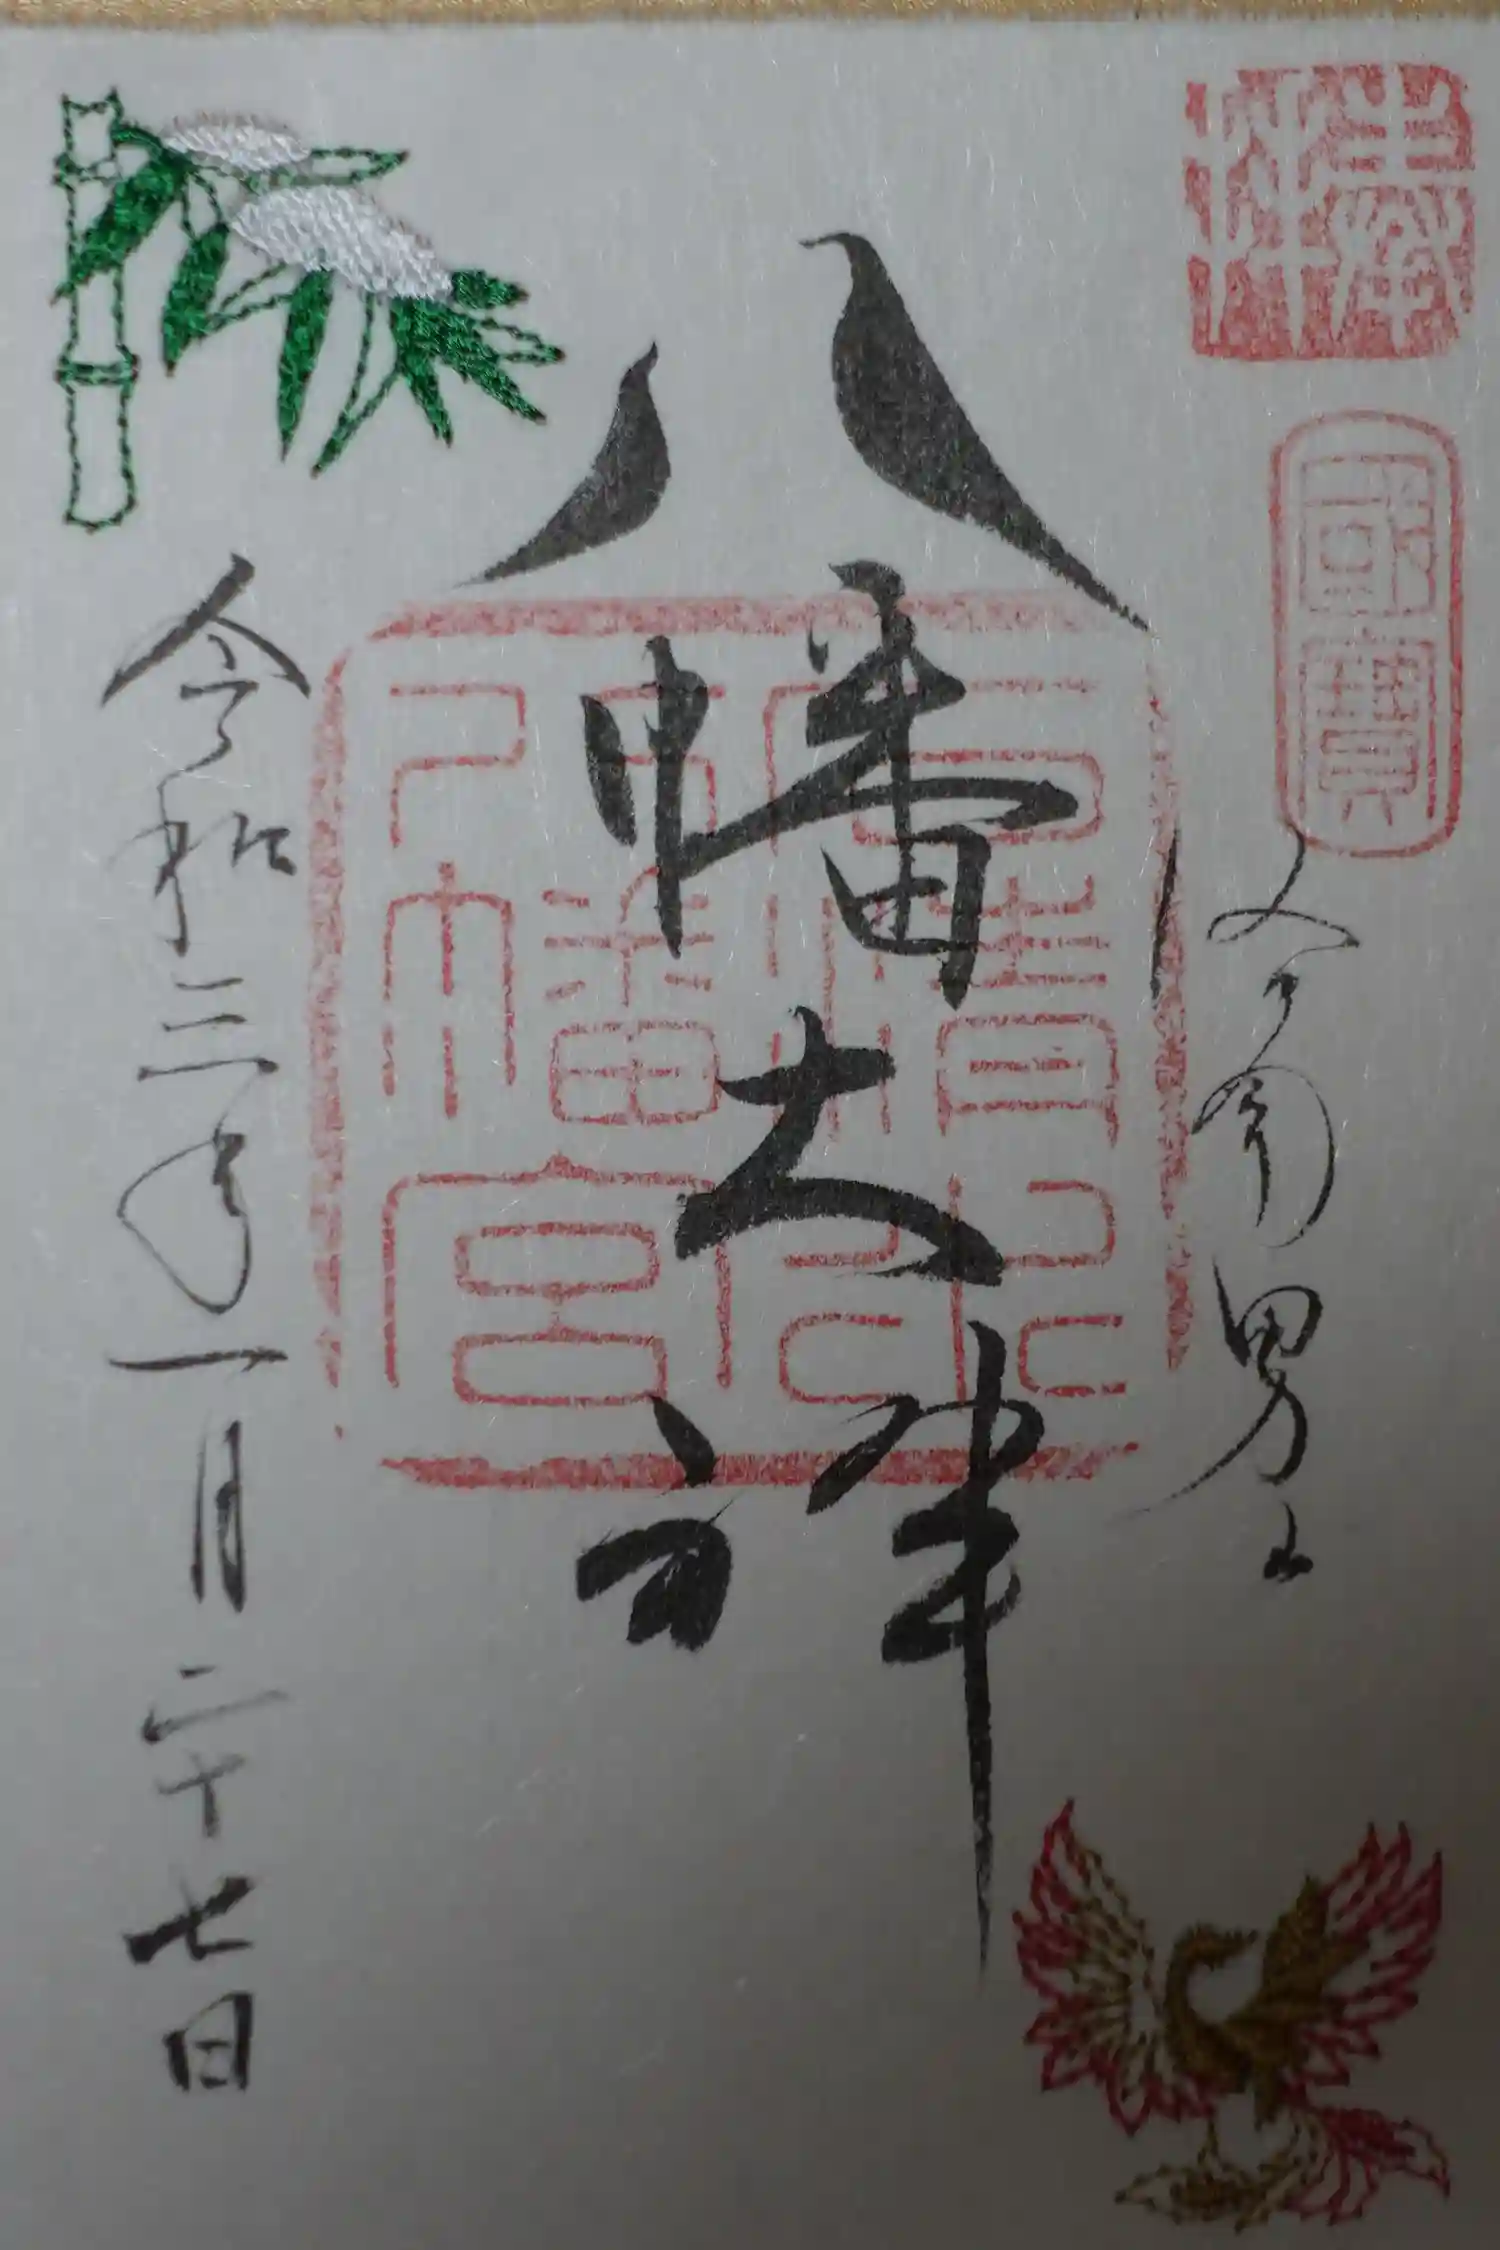 奉拝
國寶
男山
八幡大神
石清水
八幡宮
令和三年一月二十七日